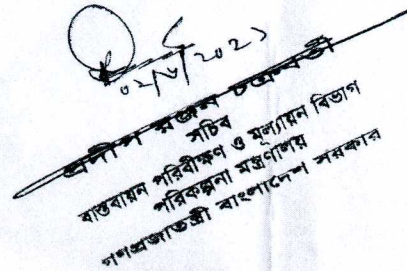 ০২/৮/২০২১
প্রদীপ রঞ্জন চক্রবর্তী
সচিব
বাস্তবায়ন পরিবীক্ষণ ও মূল্যায়ন বিভাগ
পরিকল্পনা মন্ত্রণালয়
গণপ্রজাতন্ত্রী বাংলাদেশ সরকার